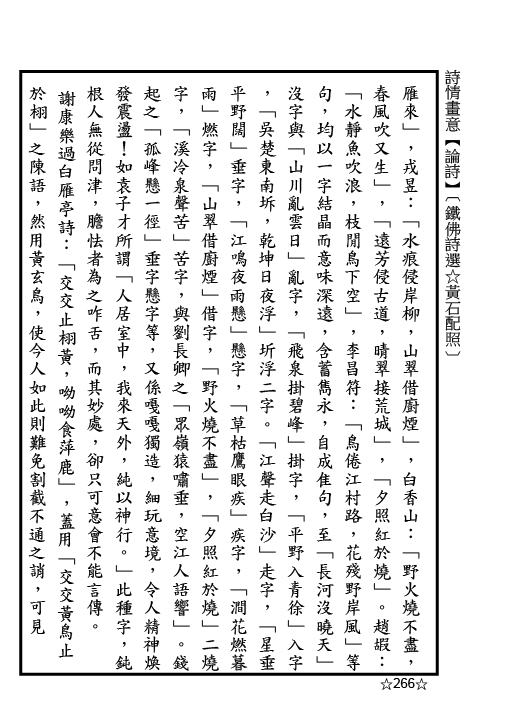 詩情畫意【論詩】〔鐵佛詩選☆黃石配照〕
雁來」，戎昱：「水痕侵岸柳，山翠借廚煙」，白香山：「野火燒不盡，
春風吹又生」，「遠芳侵古道，晴翠接荒城」，「夕照紅於燒」。趙嘏：
「水靜魚吹浪，枝閒鳥下空」，李昌符：「鳥倦江村路，花殘野岸風」等
句，均以一字結晶而意味深遠，含蓄雋永，自成隹句，至「長河沒曉天」
沒字與「山川亂雲日」亂字，「飛泉掛碧峰」掛字，「平野入青徐」入字
，「吳楚東南坼，乾坤日夜浮」圻浮二字。「江聲走白沙」走字，「星垂
平野闊」垂字，「江鳴夜雨懸」懸字，「草枯鷹眼疾」疾字，「澗花燃暮
雨」燃字，「山翠借廚煙」借字，「野火燒不盡」，「夕照紅於燒」二燒
字，「溪冷泉聲苦」苦字，與劉長卿之「眾嶺猿嘯垂，空江人語響」。錢
起之「孤峰懸一徑」垂字懸字等，又係嘎嘎獨造，細玩意境，令人精神煥
發震盪！如袁子才所謂「人居室中，我來天外，純以神行。」此種字，鈍
根人無從問津，膽怯者為之咋舌，而其妙處，卻只可意會不能言傳。
謝康樂過白雁亭詩：「交交止栩黃，呦呦食萍鹿」，蓋用「交交黃鳥止
於栩」之陳語，然用黃玄鳥，使今人如此則難免割截不通之誚，可見
☆266☆